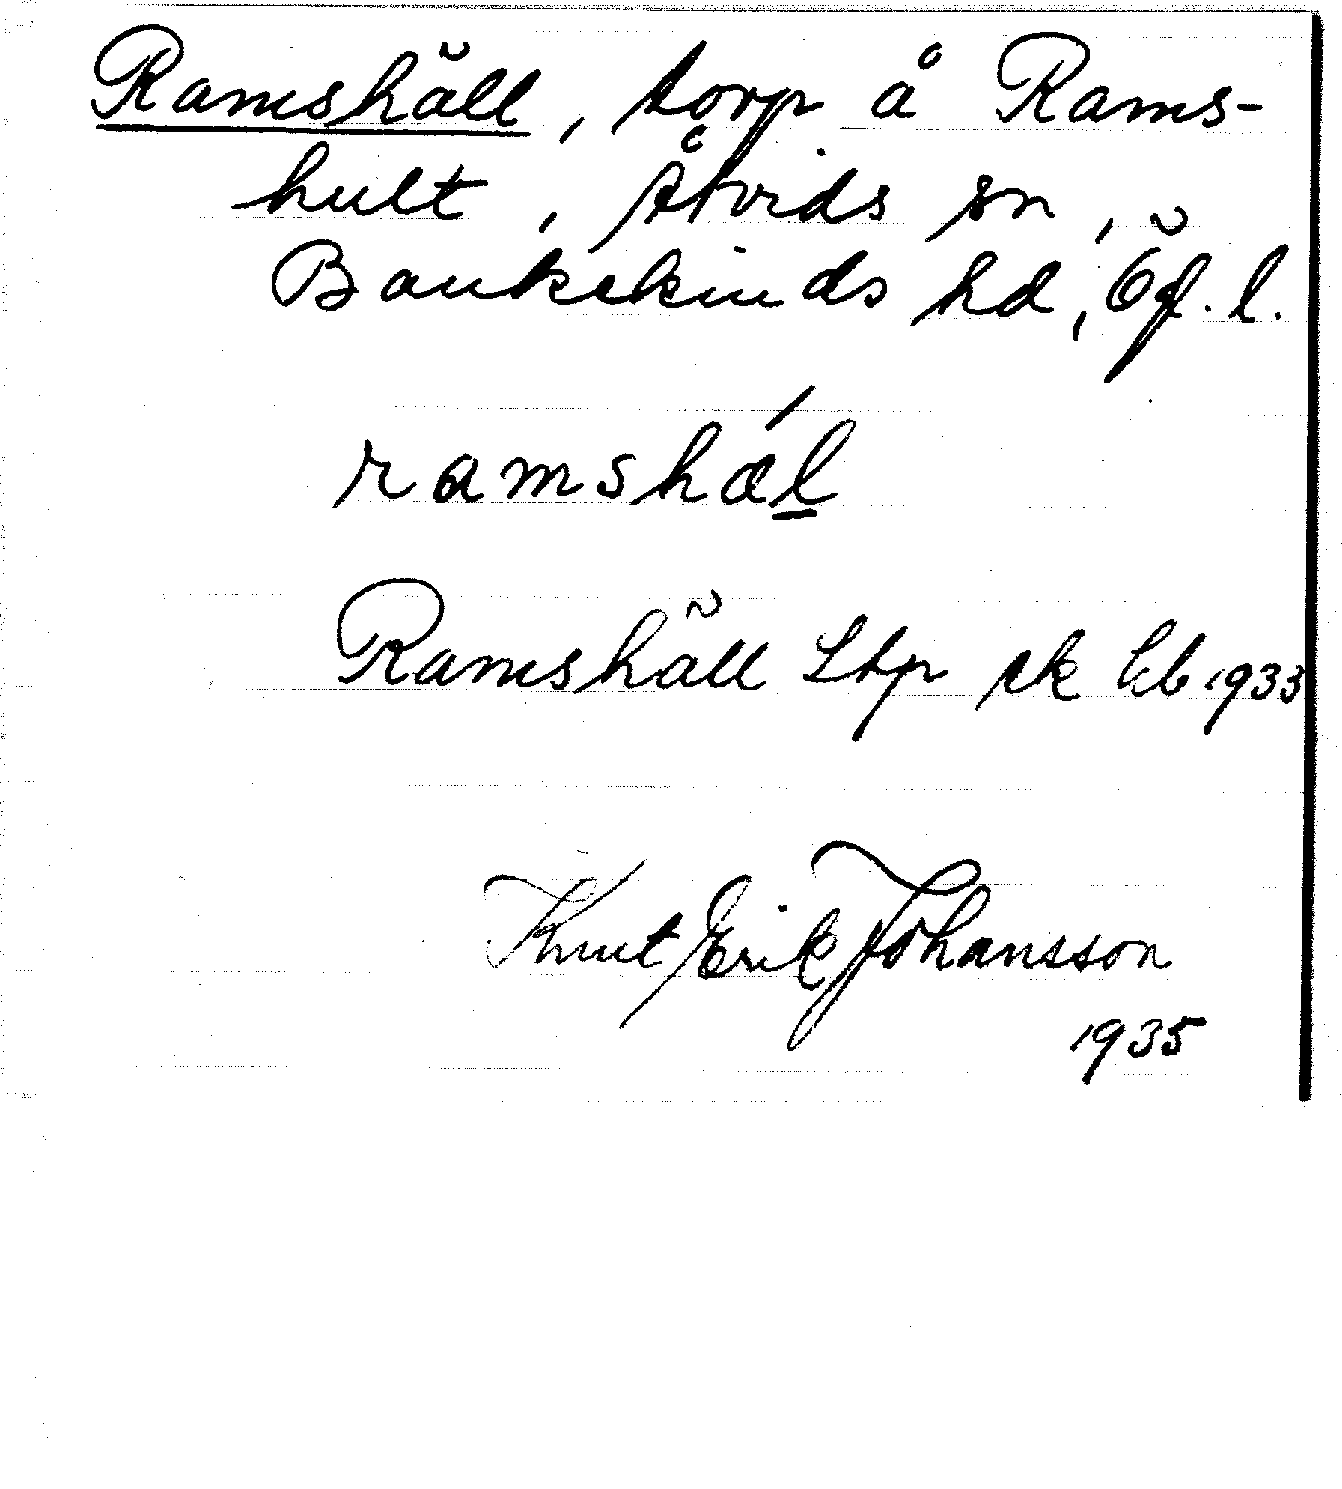 Ramshäll, torp å Rams-
hult, Åtvids sn,
Bankekinds hd, Ög. l.
ramshǽl
Ramshäll Ltp ek kb 1933
Knut Erik Johansson
1935